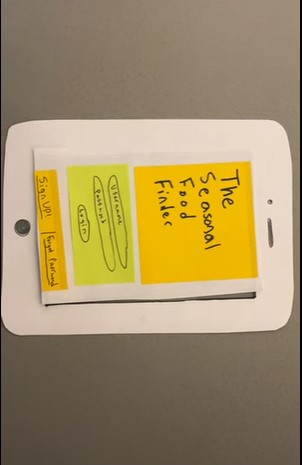 The
Seasonal
Food
Finder
Username
Password
Login
Sign Up! | Forgot Password